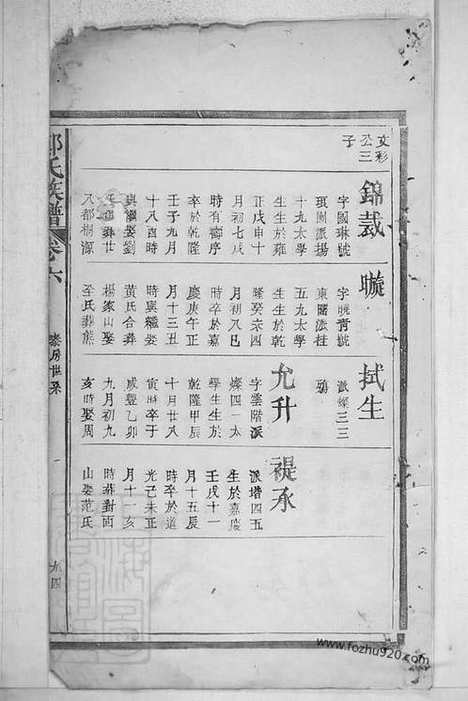 文彩
公三
子
錦裁
字國琳號
琅園派揚
十九太學
生生於雍
正戊申十
月初七戌
時有壽序
卒於乾隆
壬子九月
十八酉時
與繼娶劉
合葬廿
八都楓源
暶
字曉青號
東園派桂
五九太學
生生於乾
隆癸亥四
月初八巳
時卒於嘉
慶庚午正
月十三丑
時與繼娶
黃氏合葬
楊家山娶
李氏葬熊
拭生
派燦三三
殤
允升
字雲階派
燦四一太
學生生於
乾隆甲辰
十月廿八
寅時卒于
咸豐乙卯
九月初九
亥時娶周
禔永
派增四五
生於嘉慶
壬戌十一
月十五辰
時卒於道
光己未正
月十一亥
時葬對面
山娶范氏
氏族譜
卷六
泰房世系
九四
www.fozhu920.com